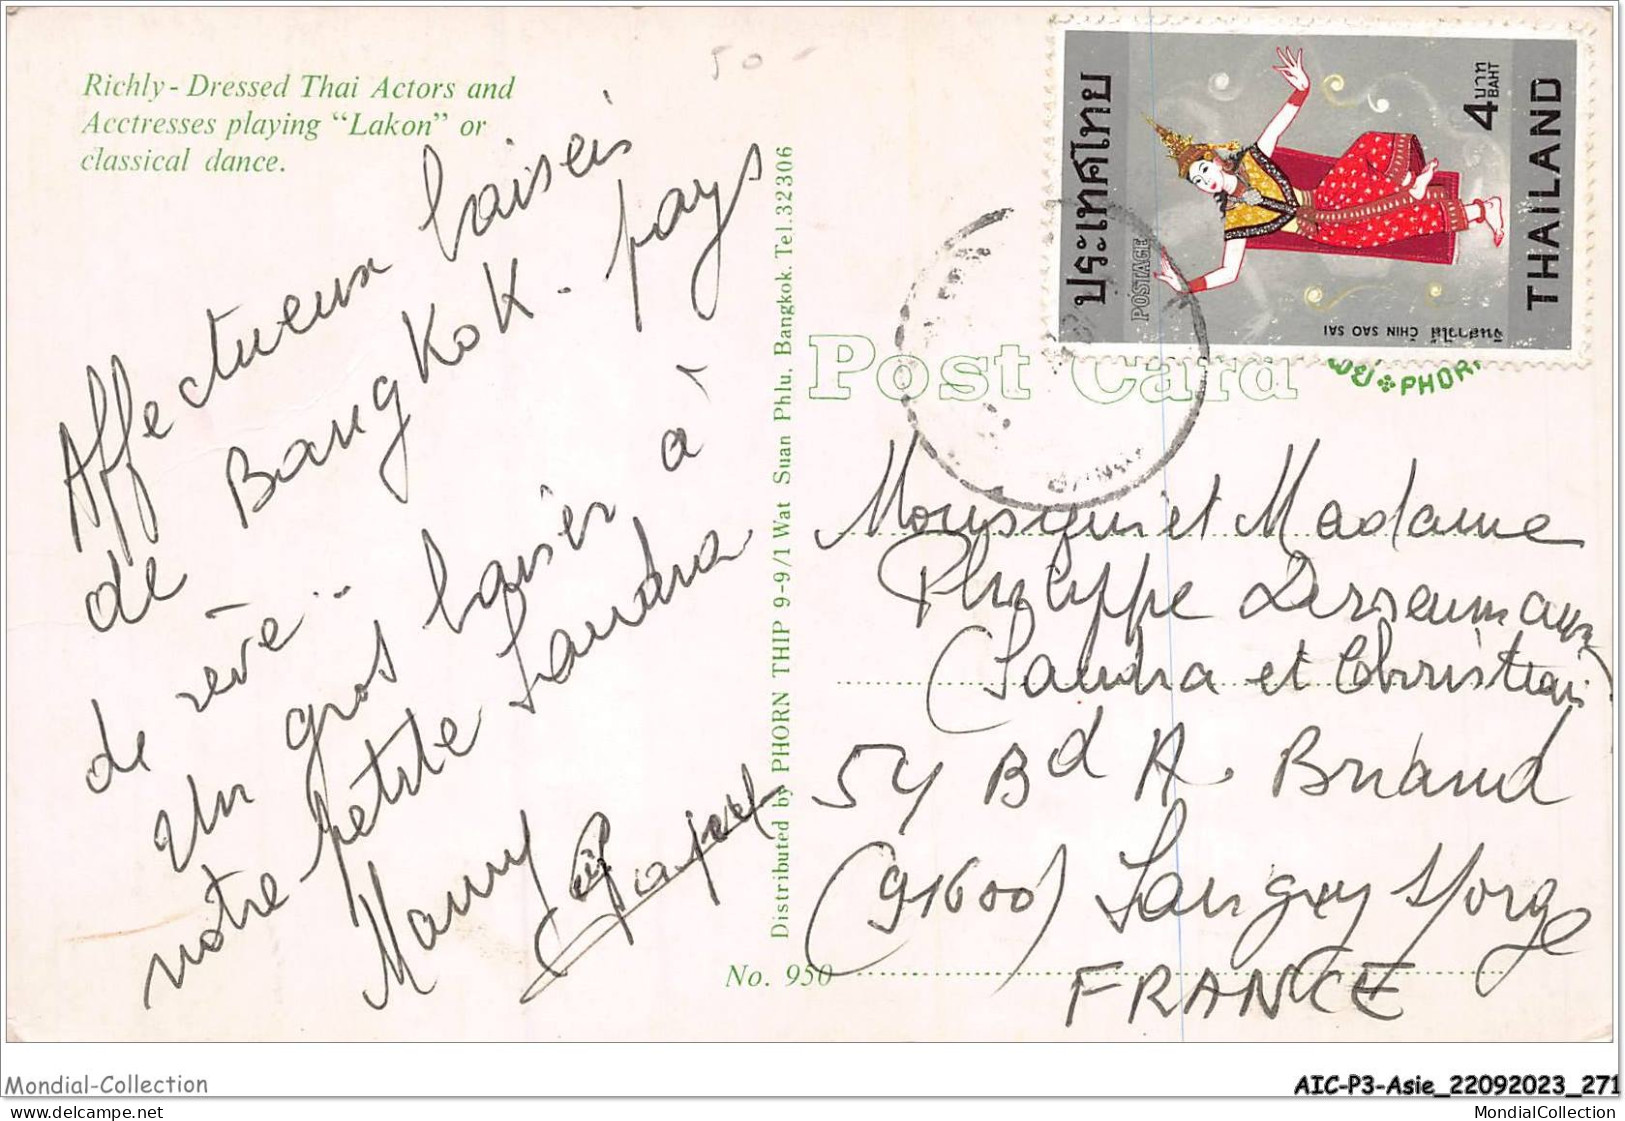 Richly - Dressed Thai Actors and
Acctresses playing "Lakon" or
classical dance.
50 -
Affectueux baisers
de Bangkok - pays
de rêve..
Un gros baiser à
notre petite Sandra
Mamy
Distributed by PHORN THIP 9-9/1 Wat Suan Phlu, Bangkok. Tel. 32306
No. 950
Post Card
ประเทศไทย
POSTAGE
4 บาท
BAHT
THAILAND
จีนสาวไส้ CHIN SAO SAI
PHOR
Monsieur et Madame
Philippe
Sandra et Christian
54 Bd A. Briand
(91600) Savigny s/Orge
FRANCE
Mondial-Collection
AIC-P3-Asie_22092023_271
www.delcampe.net
MondialCollection